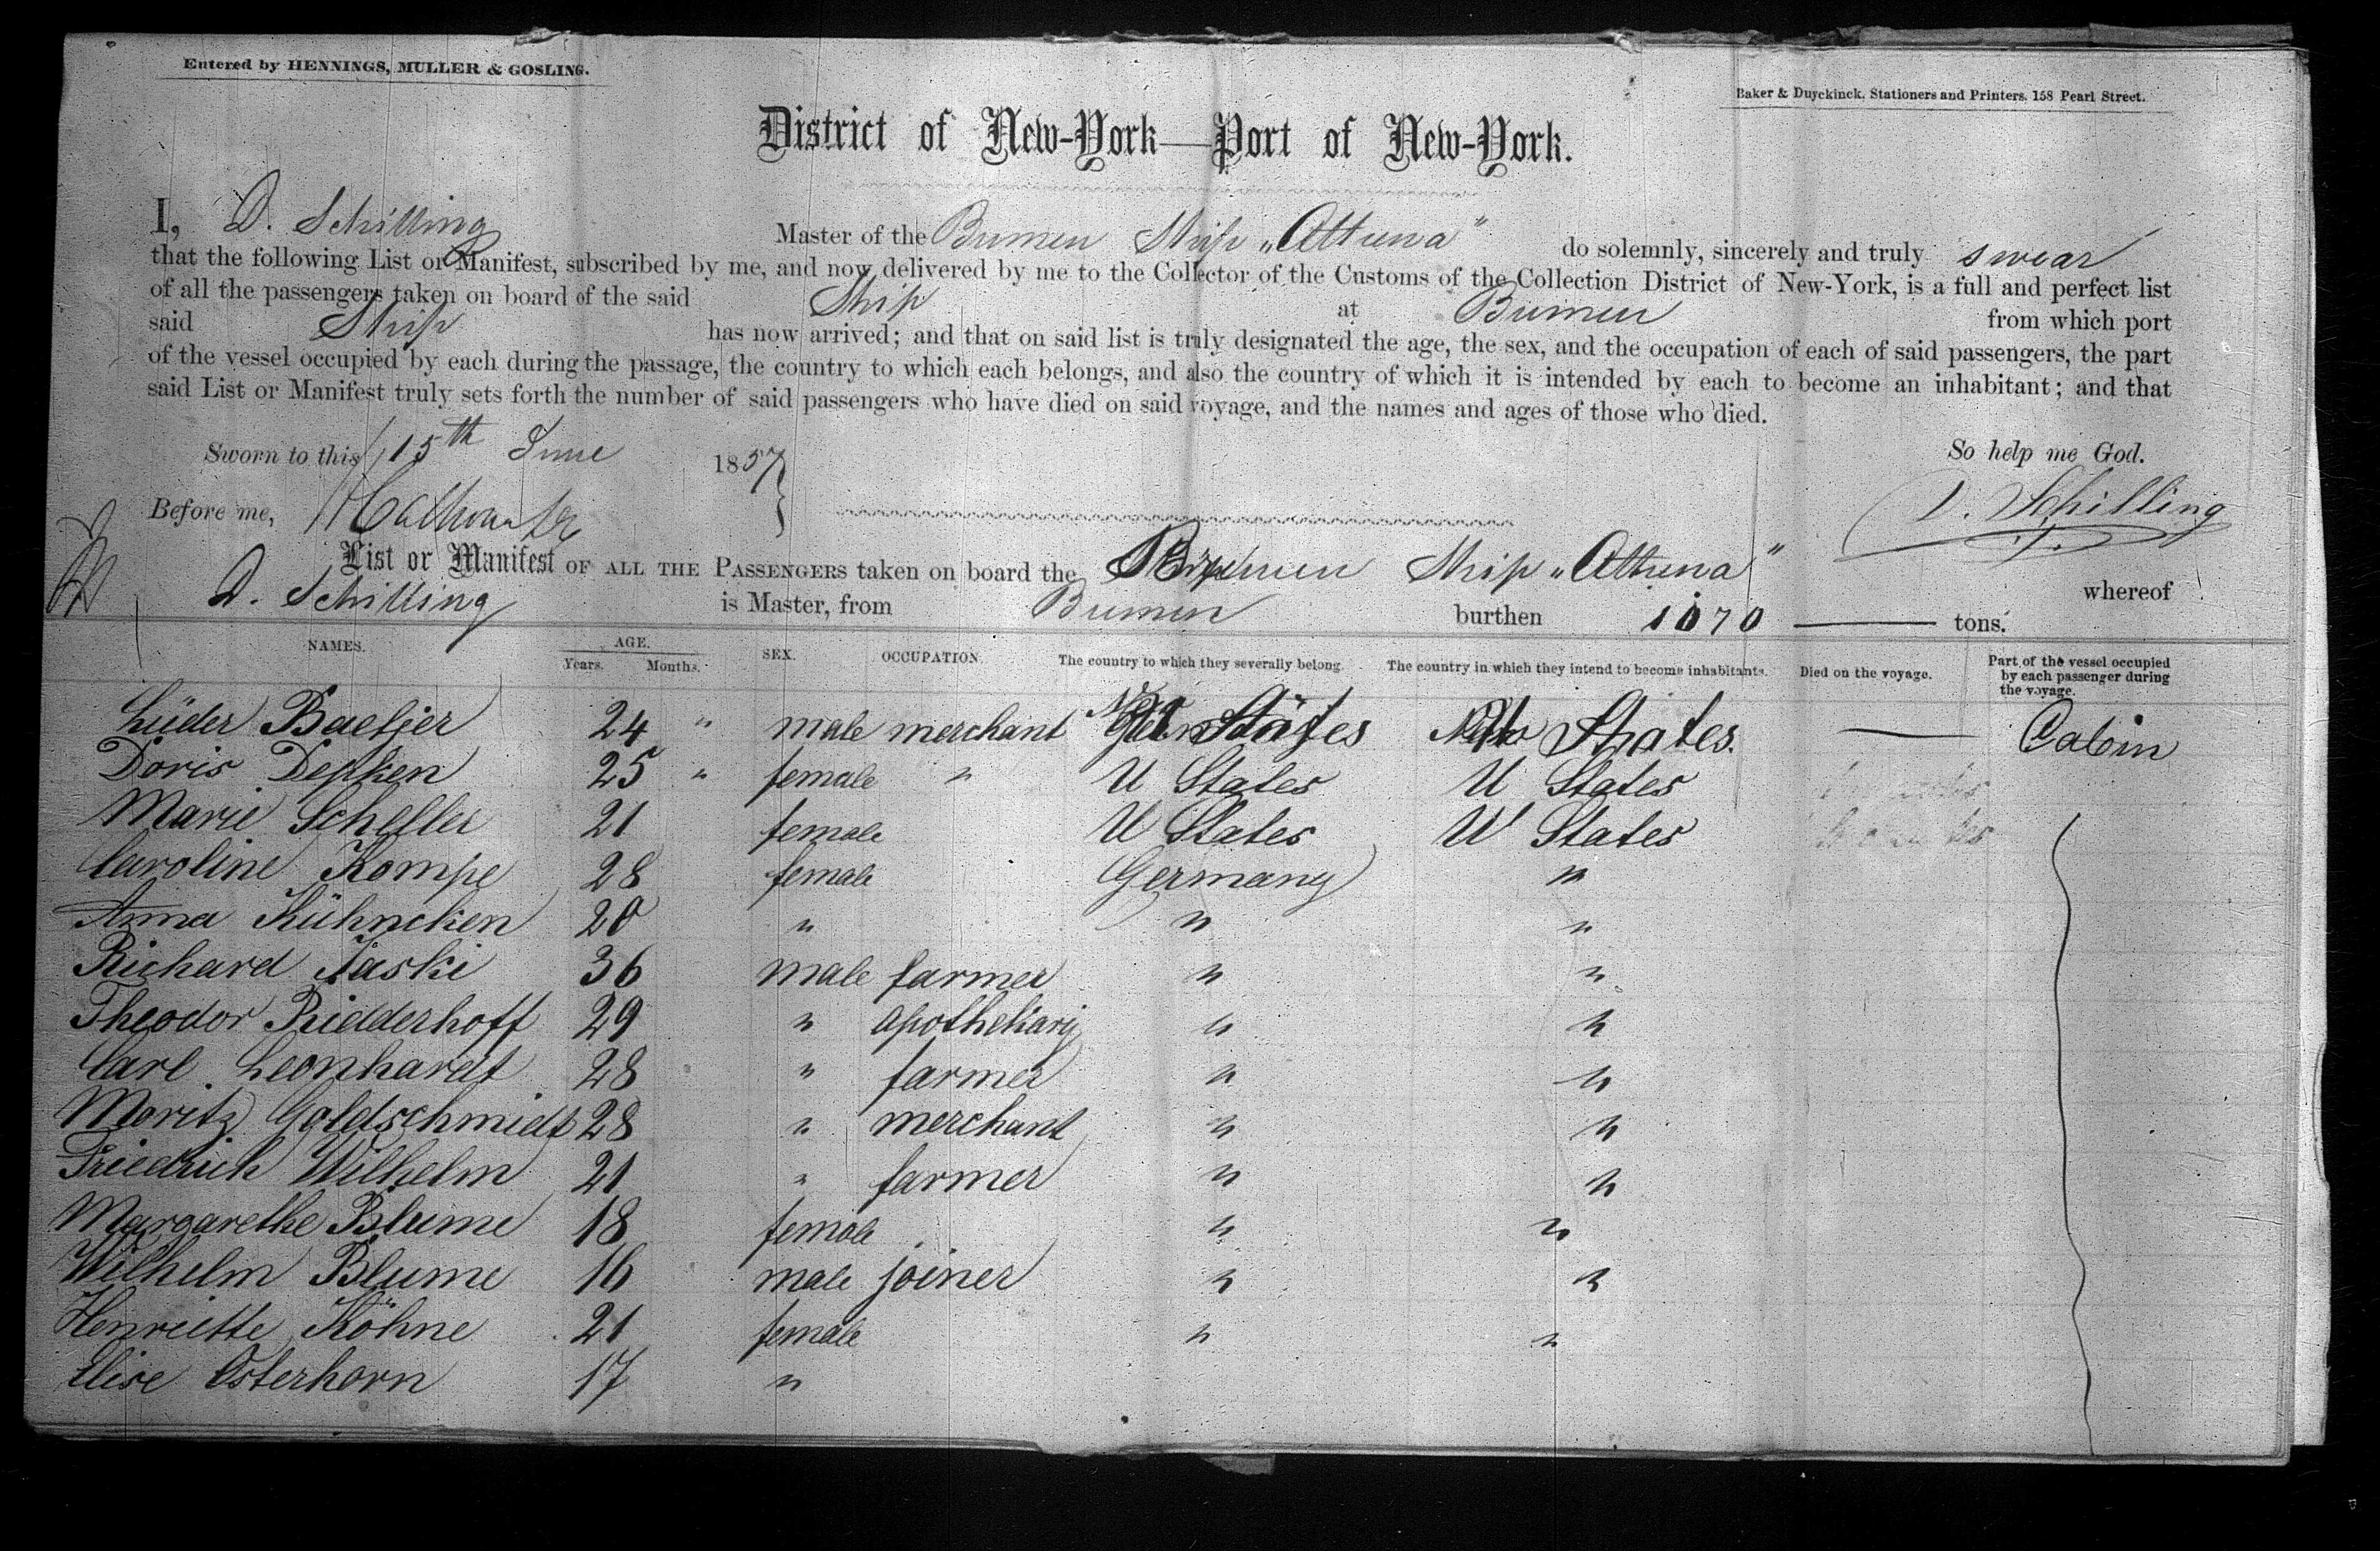 Entered by HENNINGS, MULLER & GOSLING.
Baker & Duyckinck, Stationers and Printers, 158 Pearl Street.
District of New-York—Port of New-York.
I, D. Schilling Master of the Bremen Ship „Athena" do solemnly, sincerely and truly swear
that the following List or Manifest, subscribed by me, and now delivered by me to the Collector of the Customs of the Collection District of New-York, is a full and perfect list
of all the passengers taken on board of the said Ship at Bremen from which port
said Ship has now arrived; and that on said list is truly designated the age, the sex, and the occupation of each of said passengers, the part
of the vessel occupied by each during the passage, the country to which each belongs, and also the country of which it is intended by each to become an inhabitant; and that
said List or Manifest truly sets forth the number of said passengers who have died on said voyage, and the names and ages of those who died.
Sworn to this 15th June 1857
So help me God.
Before me,
D. Schilling
List or Manifest OF ALL THE PASSENGERS taken on board the Bremen Ship „Athena" whereof
D. Schilling is Master, from Bremen burthen 1070 — tons.
NAMES. AGE. Years. Months. SEX. OCCUPATION. The country to which they severally belong. The country in which they intend to become inhabitants. Died on the voyage. Part of the vessel occupied by each passenger during the voyage.
Lüder Baetjer 24 " male merchant States States. — Cabin
Doris Depken 25 " female " U States U States
Marie Scheller 21 female U States U States
Caroline Kompe 28 female Germany "
Anna Kühncken 20 " " "
Richard Jaski 36 male farmer " "
Theodor Ridderhoff 29 " apothekary " "
Carl Leonhardt 28 " farmer " "
Moritz Goldschmidt 28 " merchant " "
Friedrich Wilhelm 21 " farmer " "
Margarethe Blume 18 female " "
Wilhelm Blume 16 male joiner " "
Henriette Köhne 21 female " "
Elise Osterhorn 17 "